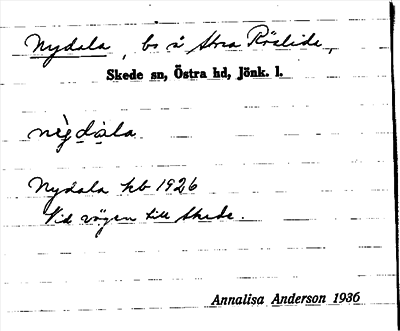 Nydala, bs å Stora Röslida,
Skede sn, Östra hd, Jönk. l.
nỳdala
Nydala kb 1926
Vid vägen till Skede.
Annalisa Anderson 1936